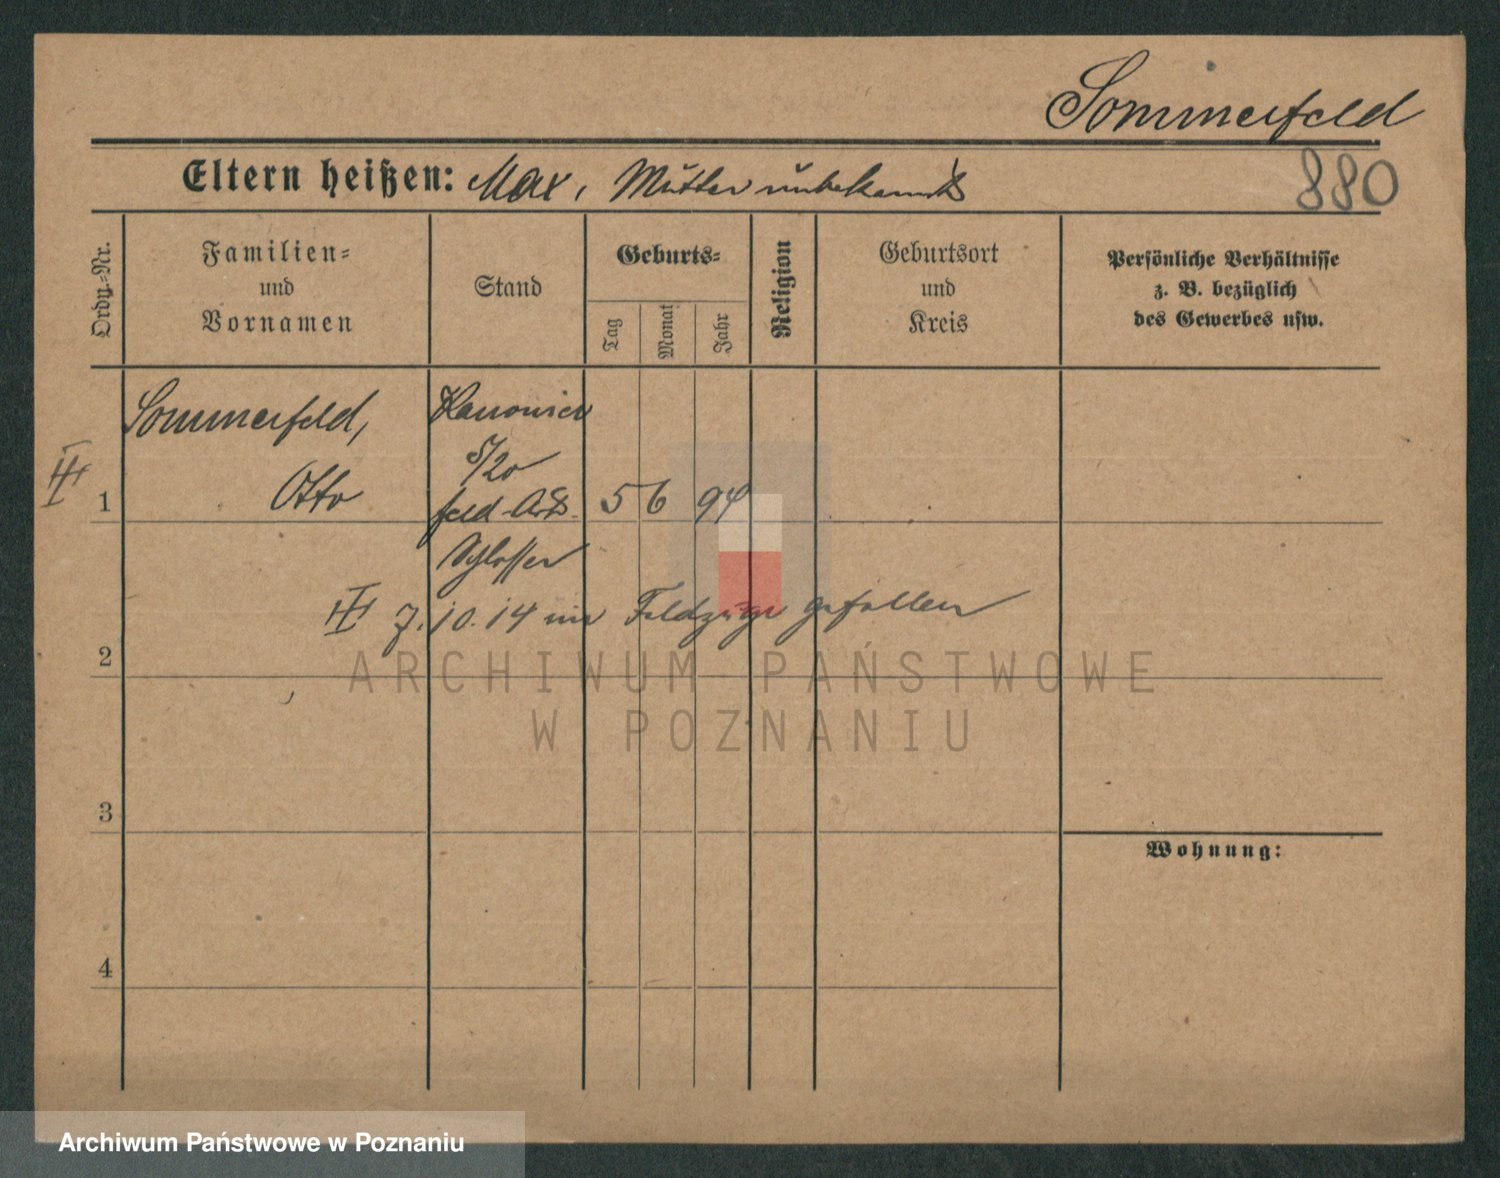 Sommerfeld
Eltern heißen: Max, Mutter unbekannt
880
Ordn.-Nr.
Familien-
und
Vornamen
Stand
Geburts-
Tag
Monat
Jahr
Religion
Geburtsort
und
Kreis
Persönliche Verhältnisse
z. B. bezüglich
des Gewerbes usw.
Sommerfeld,
Otto
Kanonier
5/20
Feld-Art.
Schlosser
1
5 6 94
7.10.14 im Feldzuge gefallen
2
ARCHIWUM PAŃSTWOWE
W POZNANIU
3
Wohnung:
4
Archiwum Państwowe w Poznaniu